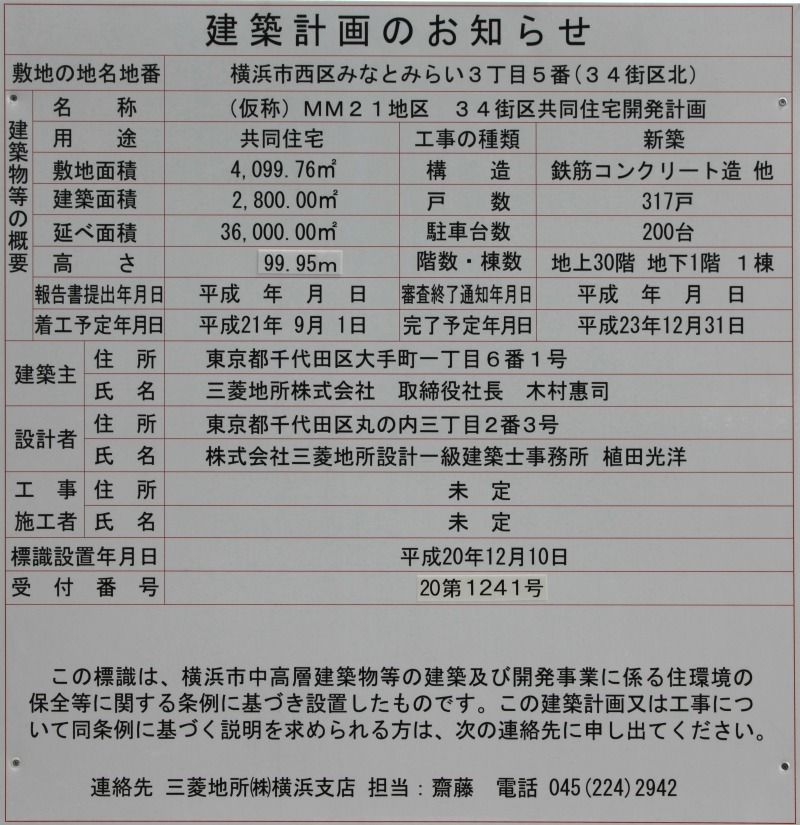 建築計画のお知らせ
敷地の地名地番 横浜市西区みなとみらい3丁目5番(34街区北)
建築物等の概要
名 称 (仮称)MM21地区 34街区共同住宅開発計画
用 途 共同住宅 工事の種類 新築
敷地面積 4,099.76㎡ 構 造 鉄筋コンクリート造 他
建築面積 2,800.00㎡ 戸 数 317戸
延べ面積 36,000.00㎡ 駐車台数 200台
高 さ 99.95m 階数・棟数 地上30階 地下1階 1棟
報告書提出年月日 平成 年 月 日 審査終了通知年月日 平成 年 月 日
着工予定年月日 平成21年 9月 1日 完了予定年月日 平成23年12月31日
建築主 住 所 東京都千代田区大手町一丁目6番1号
氏 名 三菱地所株式会社 取締役社長 木村惠司
設計者 住 所 東京都千代田区丸の内三丁目2番3号
氏 名 株式会社三菱地所設計一級建築士事務所 植田光洋
工 事 住 所 未 定
施工者 氏 名 未 定
標識設置年月日 平成20年12月10日
受 付 番 号 20第1241号
この標識は、横浜市中高層建築物等の建築及び開発事業に係る住環境の
保全等に関する条例に基づき設置したものです。この建築計画又は工事につ
いて同条例に基づく説明を求められる方は、次の連絡先に申し出てください。
連絡先 三菱地所㈱横浜支店 担当：齋藤 電話 045(224)2942